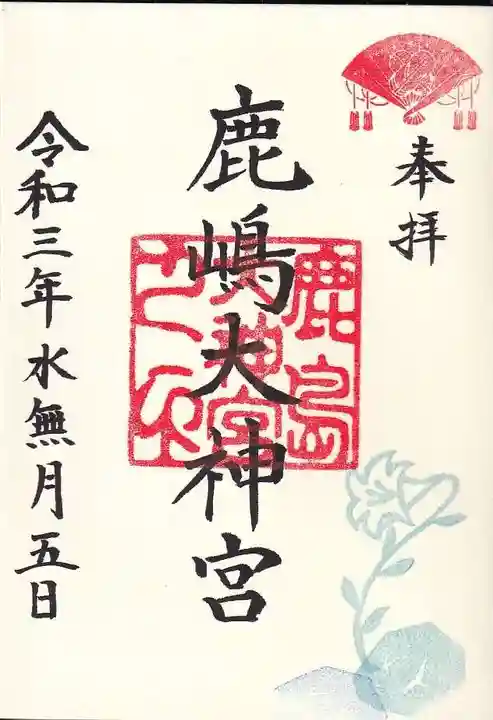 奉拝
鹿嶋大神宮
令和三年水無月五日
鹿島
大神宮